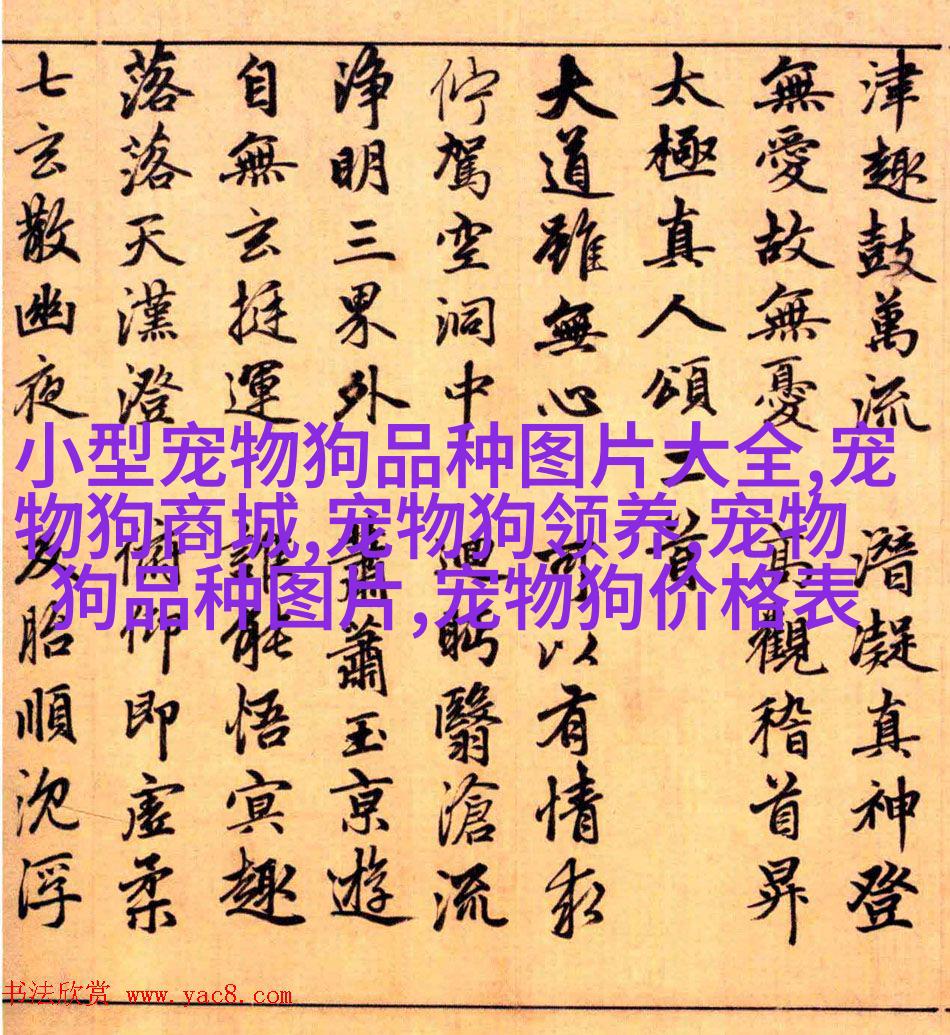 津趣鼓萬流 潛凝真神登
無愛故無憂 高觀稽首昇
太極真人頌二首
大道雖無心 可以有情求
佇駕空洞中 迴眄翳滄流
淨明三界外 蕭蕭玉京遊
自無玄挺運 誰能悟冥趣
落落天漢澄 俯仰即虛柔
七玄散幽夜 反胎順沈浮
小型宠物狗品种图片大全,宠
物狗商城,宠物狗领养,宠物
狗品种图片,宠物狗价格表
书法欣赏 www.yac8.com